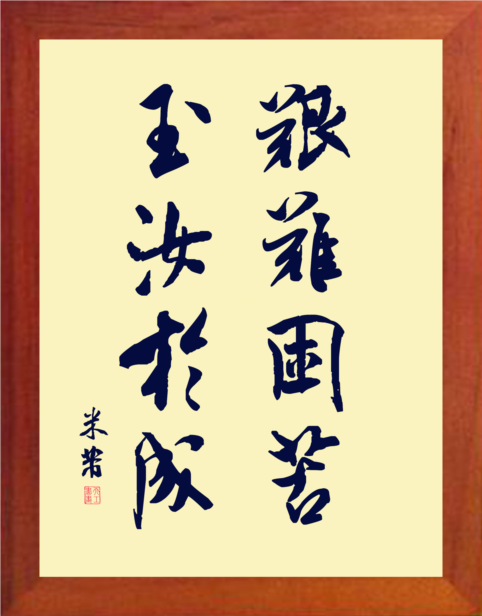 艱難困苦
玉汝於成
米芾